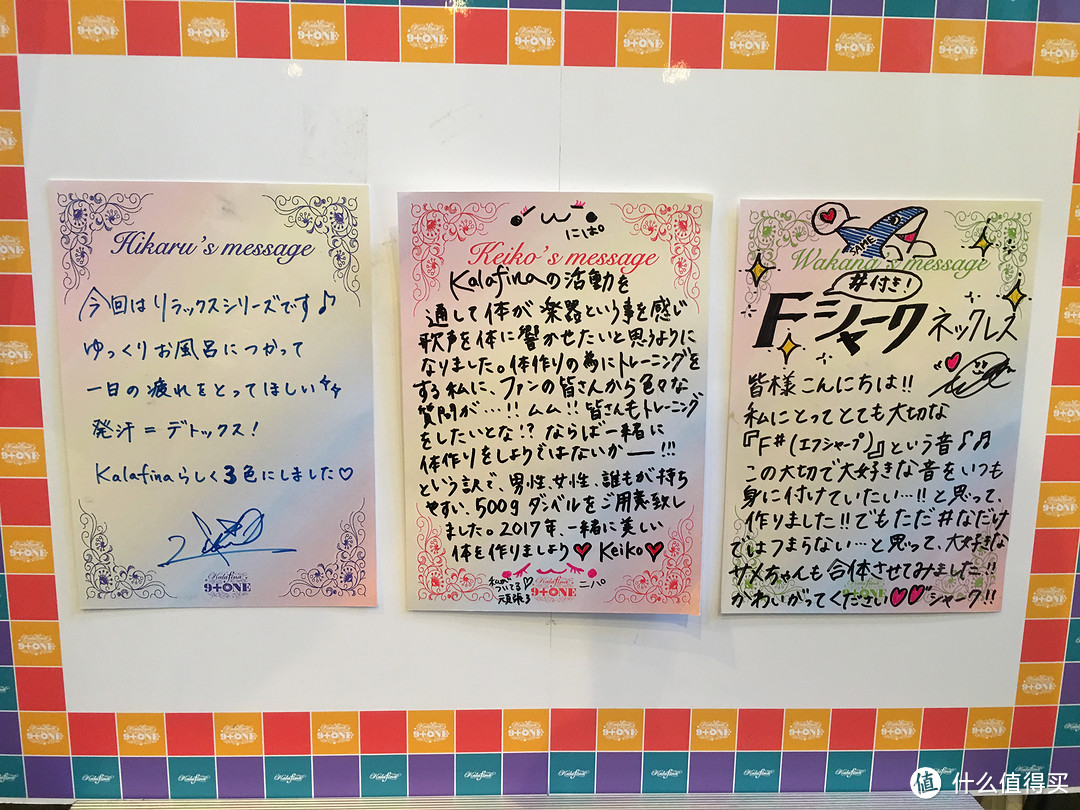 Hikaru's message
今回はリラックスシリーズです♪
ゆっくりお風呂につかって
一日の疲れをとってほしい
発汗=デトックス!
Kalafinaらしく3色にしました♡
Kalafina
9+ONE
にぱ。
Keiko's message
Kalafinaの活動を
通して体が楽器という事を感じ
歌声を体に響かせたいと思うように
なりました。体作りの為にトレーニングを
する私に、ファンの皆さんから色々な
質問が…!!ムム!!皆さんもトレーニング
をしたいとな!?ならば一緒に
体作りをしようではないかー!!!
という訳で、男性、女性、誰もが持ち
やすい、500gダンベルをご用意致し
ました。2017年、一緒に美しい
体を作りましょう♥Keiko♥
私がついてる♡
頑張る
ニパ。
Kalafina
9+ONE
Wakana's message
SAME
#付き!
Fシャークネックレス
皆様こんにちは!!
私にとってとても大切な
『F#(エフシャープ)』という音♪♬
この大切で大好きな音をいつも
身に付けていたい…!!と思って、
作りました!!でもただ#なだけ
ではつまらない…と思って、大好きな
サメちゃんも合体させてみました!!
かわいがってください♥♥シャーク!!
9+ONE
值 什么值得买